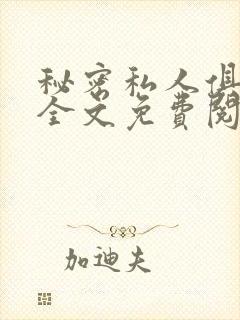 秘密私人俱
全文免费阅
加迪夫